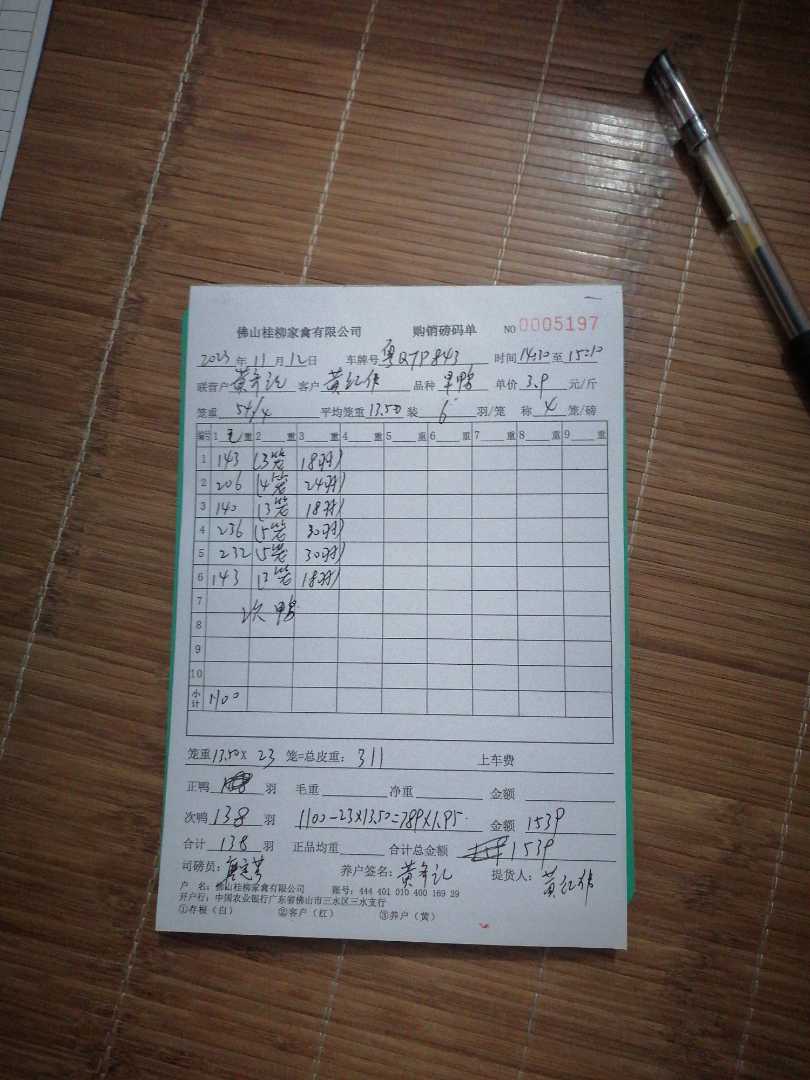 佛山桂柳家禽有限公司 购销磅码单 NO 0005197
2023 年 11 月 12 日 车牌号 粤QTP843 时间 14:30 至 15:10
联营户 黄 客户 黄红伟 品种 旱鸭 单价 3.9 元/斤
笼重 54/4 平均笼重 13.50 装 6 羽/笼 称 4 笼/磅
编号 1 毛 重 2 重 3 重 4 重 5 重 6 重 7 重 8 重 9 重
1 143 (3笼 18羽)
2 206 (4笼 24羽)
3 140 (3笼 18羽)
4 236 (5笼 30羽)
5 232 (5笼 30羽)
6 143 (3笼 18羽)
7
次鸭
8
9
10
小计 1100
笼重 13.50 x 23 笼=总皮重: 311 上车费
正鸭 羽 毛重 净重 金额
次鸭 138 羽 1100-23x13.50=789x1.95 金额 1539
合计 138 羽 正品均重 合计总金额 1539
司磅员: 养户签名: 黄 提货人: 黄红伟
户 名: 佛山桂柳家禽有限公司 账号: 444 401 010 400 169 29
开户行: 中国农业银行广东省佛山市三水区三水支行
①存根(白) ②客户(红) ③养户(黄)